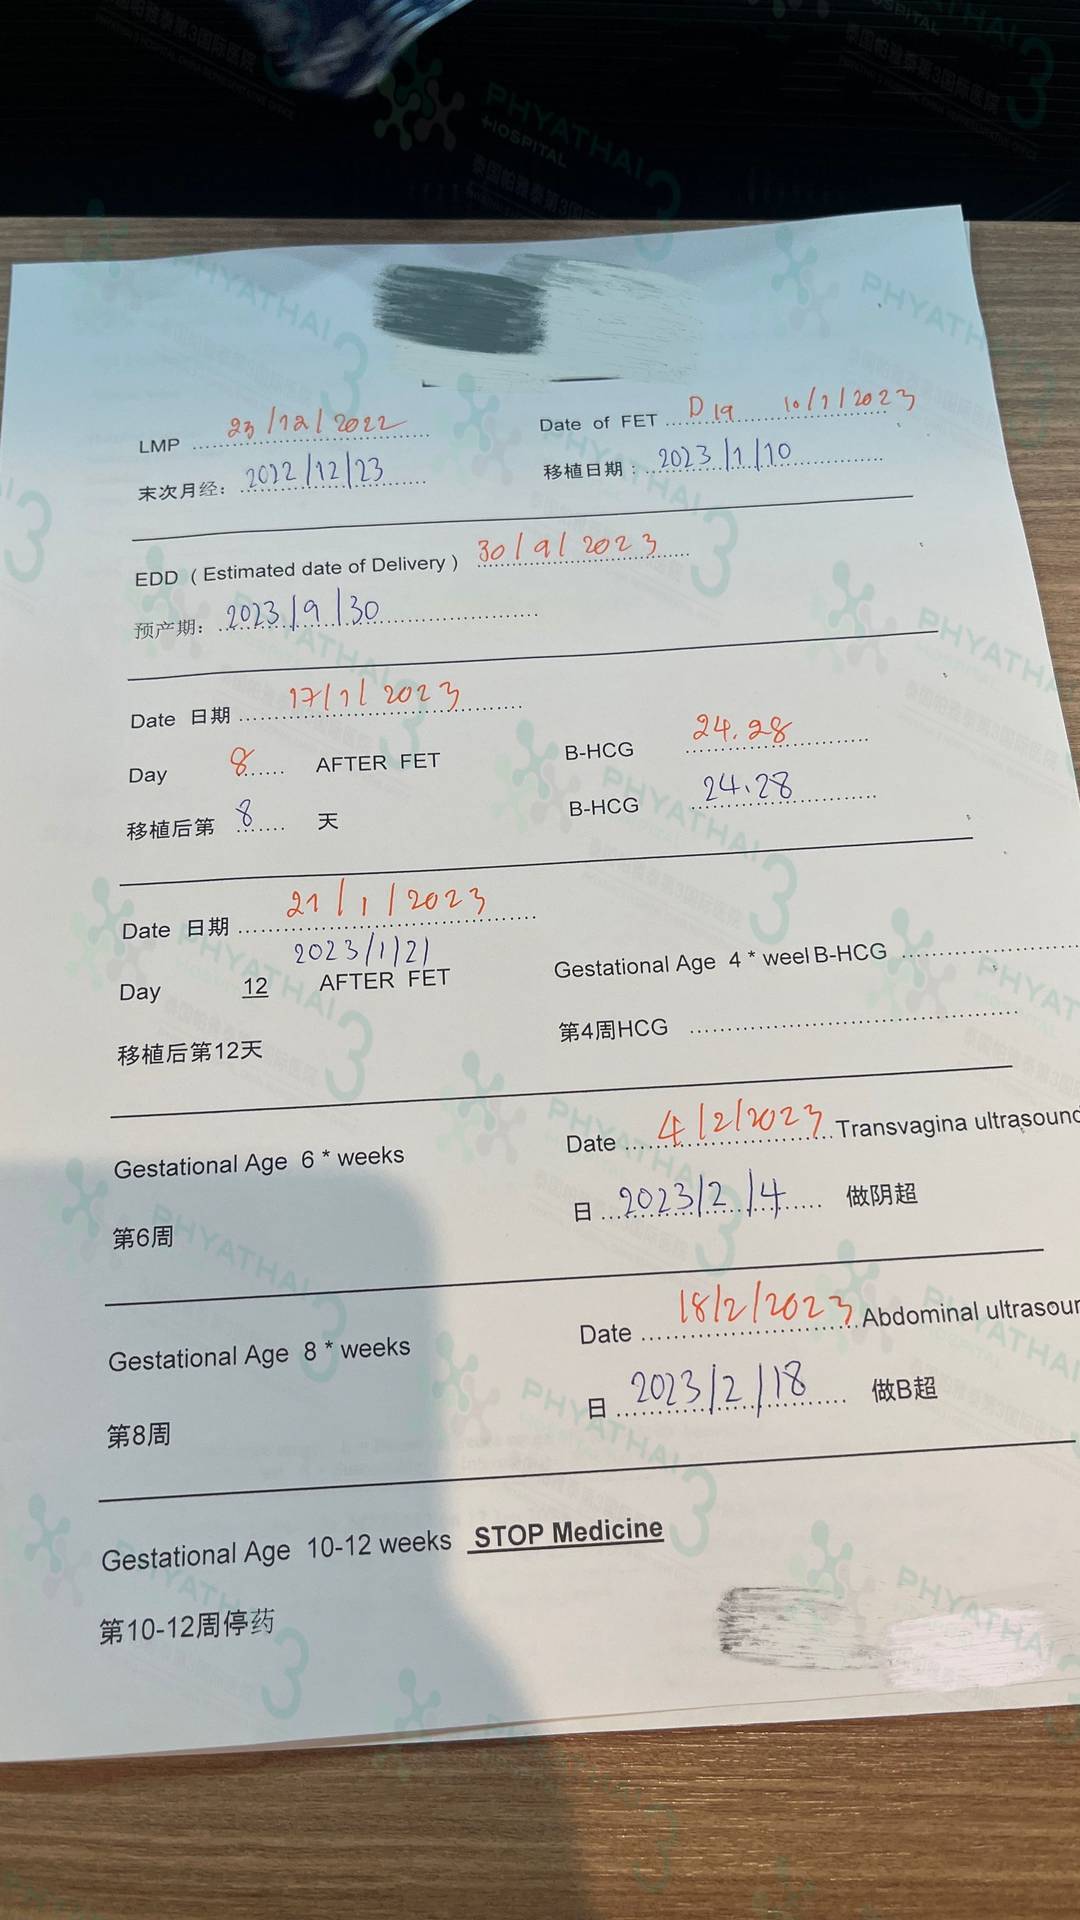 LMP 23/12/2022 Date of FET D19 10/1/2023
末次月经: 2022/12/23 移植日期: 2023/1/10
EDD ( Estimated date of Delivery ) 30/9/2023
预产期: 2023/9/30
Date 日期 17/1/2023
Day 8 AFTER FET B-HCG 24.28
移植后第 8 天 B-HCG 24.28
Date 日期 21/1/2023
2023/1/21
Day 12 AFTER FET Gestational Age 4 * weel B-HCG
移植后第12天 第4周HCG
Gestational Age 6 * weeks Date 4/2/2023 Transvagina ultrasound
第6周 日 2023/2/4 做阴超
Gestational Age 8 * weeks Date 18/2/2023 Abdominal ultrasour
第8周 日 2023/2/18 做B超
Gestational Age 10-12 weeks STOP Medicine
第10-12周停药
PHYATHAI 3
HOSPITAL